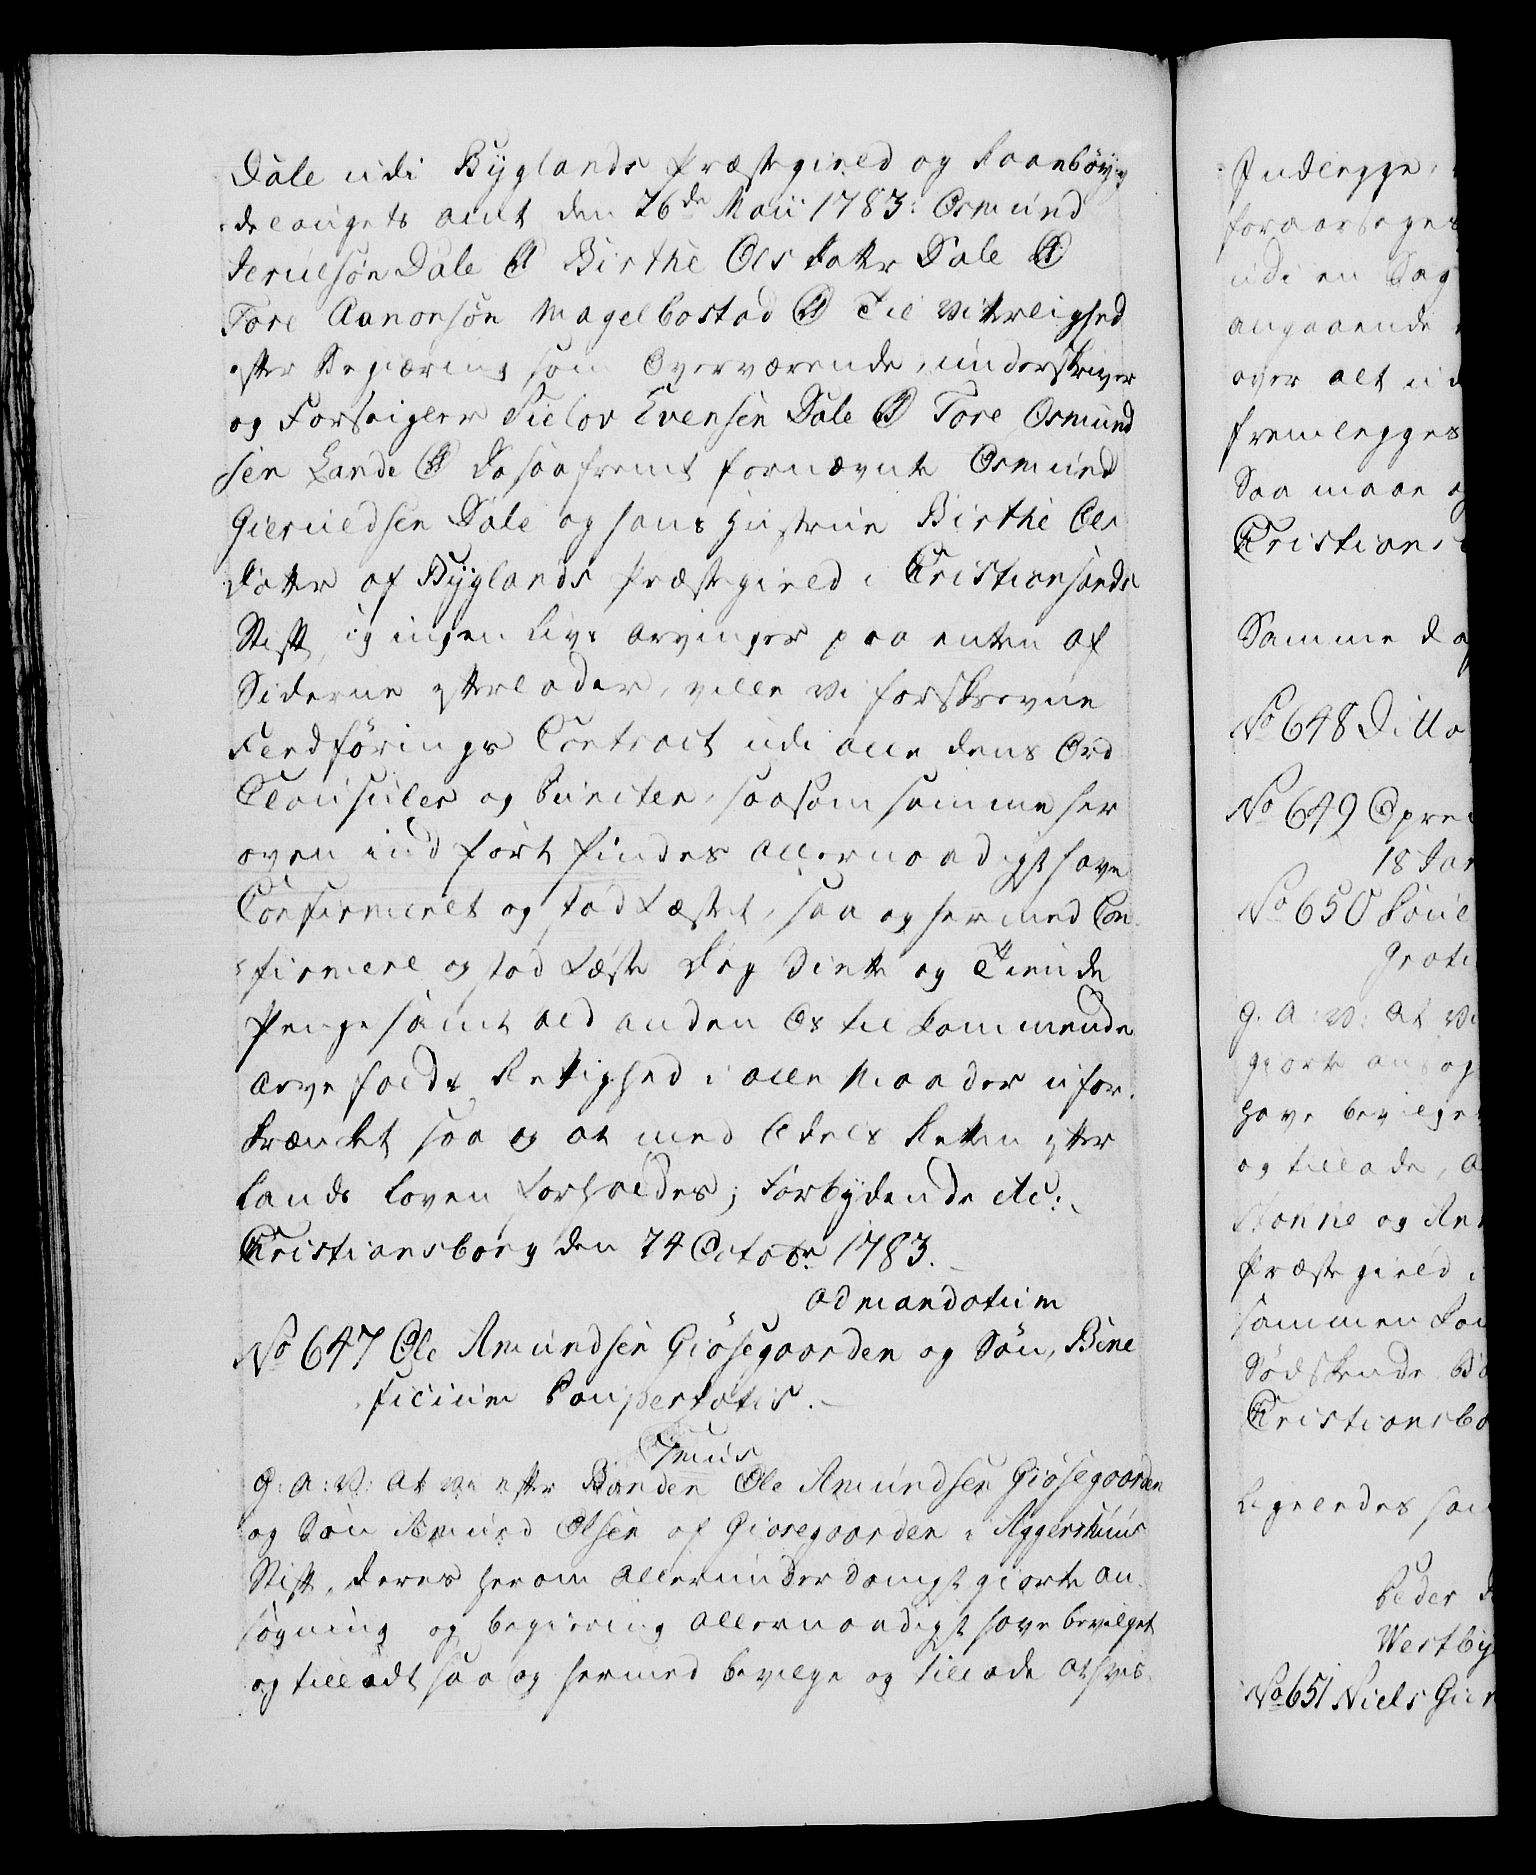 Dale udi Byglands Præstegield og Raabøyg
delaugets amt den 26de Maii 1783: Osmund
Jerulsøn Dale Birthe Ols datter Dale
Tore Aanonsøn Magelbostad Til Vitterlighed
efter Begiæring som Overværende, underskriver
og Forseigler Sielov Evensen Dale Tore Osmund
sen Lande Da saafremt fornævnte Osmund
Gieruldsen Dale og hans Hustrue Birthe Ols
Datter af Byglands Præstegield i Christiansands
Stift, ey ingen Livs Arvinger paa enten af
Siderne efterlader, ville Vi forskrevne
Feedførings Contract udi alle dens Ord
Clausuler og Puncter, saasom samme her
oven indført findes Allernaadigst have
Confirmeret og stadfæstet, saa og hermed Con
firmere og stadfæste Dog Siette og Tiende
Penge samt ald anden Os tilkommende
Arvefalds Rettighed i alle Maader ufor
krænket saa og at med Odels Retten efter
Lands Loven forholdes; Forbydende etc:
Christiansborg den 24 Octobr 1783.
ad mandatum
No 647 Ole Amundsen Giøsegaarden og Søn, Bene
ficium Paupertatis.
Tmus
G: A: V: At vi efter Bonden Ole Amundsen Giøsegaarden
og Søn Amund Olsen af Giøsegaarden i Aggershuus
Stift, deres herom allerunderdanigst giorte An
søgning og begiering allernaadigst have bevilget
og tilladt saa og hermed bevilge og tillade at hves
Indlegge,
foraarsages
udi en Sag
angaaende
over alt ud
fremlegges
Saa maae og
Christians
Samme da
No 648 Ditto
No 649 Opre
18 Jar
No 650 Poul
Grati
G: A: V: At Vi
giorte ansøg
have bevilge
og tillade, A
Præstegield i
sammen kom
Sødskende B
Christiansbo
Ligelendes som
Peder
Westby
No 651 Niels Gier